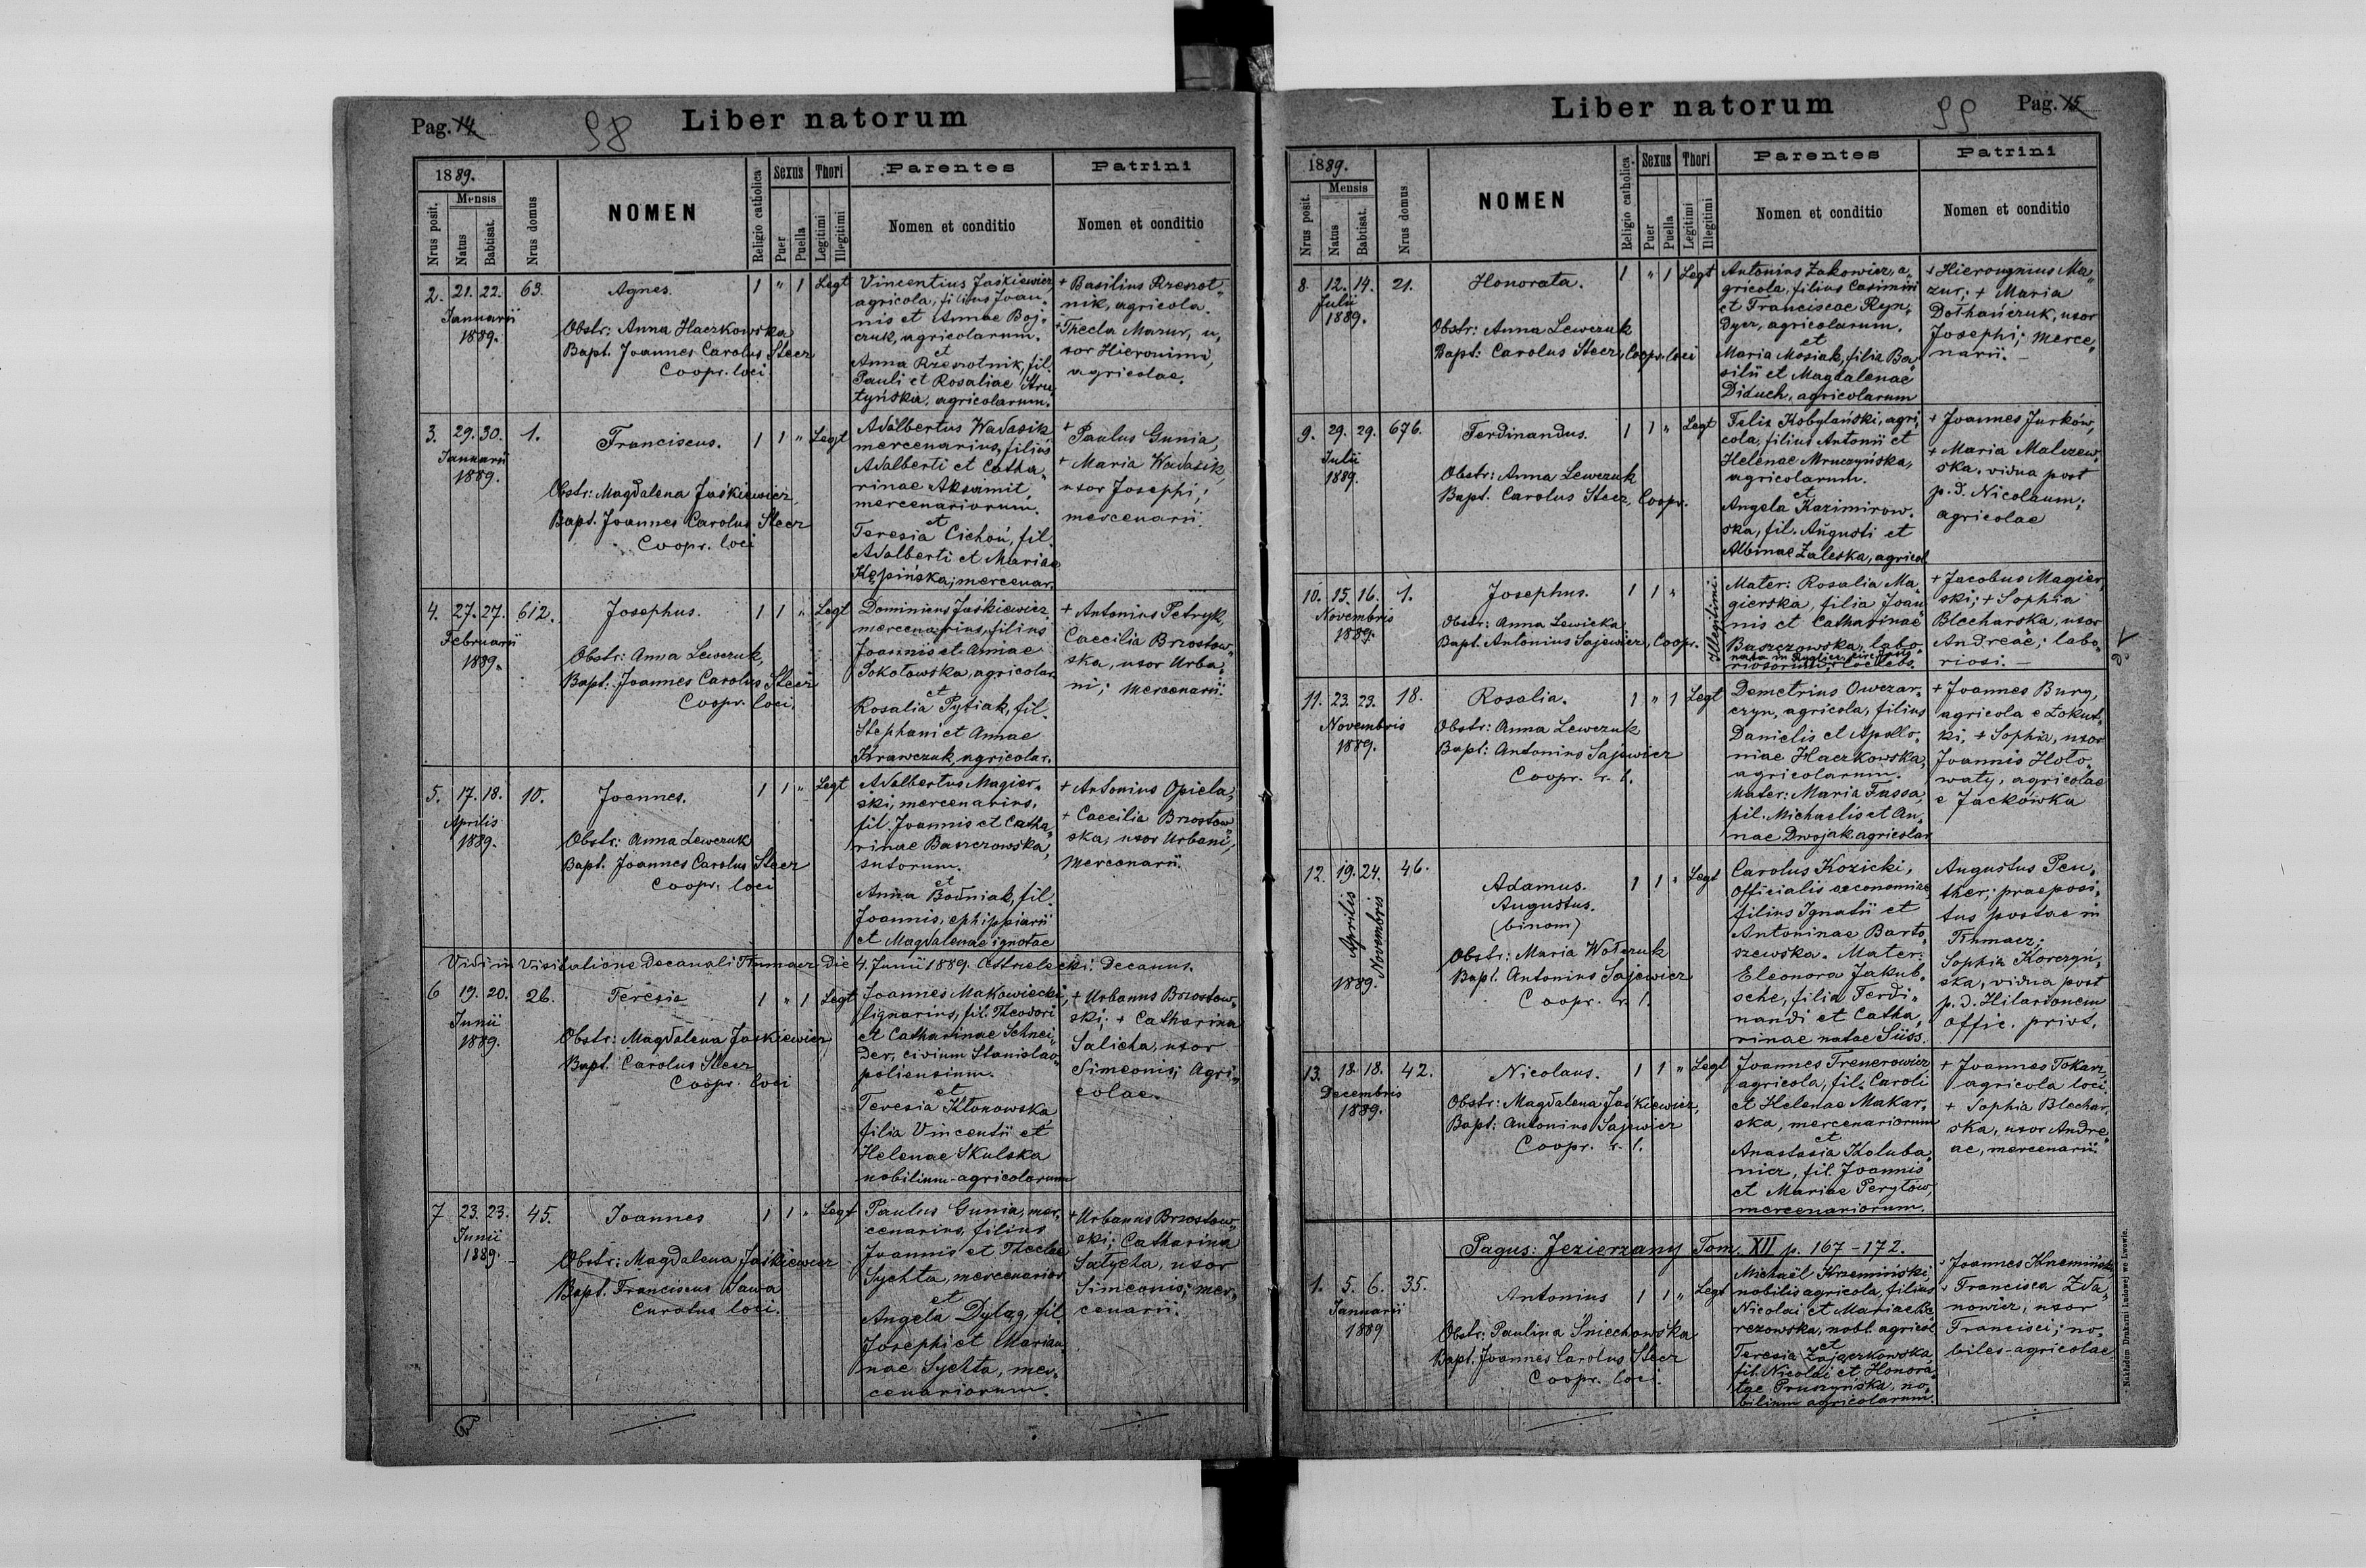 Pag. 14
98
Liber natorum
1889.
Nrus posit.
Mensis
Natus
Babtisat.
Nrus domus
NOMEN
Religio catholica
Sexus
Puer
Puella
Thori
Legitimi
Illegitimi
Parentes
Nomen et conditio
Patrini
Nomen et conditio
2. 21. 22. 63.
Januarii
1889.
Agnes.
Obstr: Anna Haczkowska
Bapt. Joannes Carolus Steer
Coopr. loci.
1 " 1 Legt
Vincentius Jaśkiewicz
agricola, filius Joan„
nis et Annae Boj„
czuk, agricolarum.
et
Anna Rzeszotnik, fil.
Pauli et Rosaliae Kru„
tyńska, agricolarum.
+ Basilius Rzeszot„
nik, agricola.
+ Thecla Mazur, u„
xor Hieronimi,
agricolae.
3. 29. 30. 1.
Januarii
1889.
Franciscus.
Obstr: Magdalena Jaśkiewicz,
Bapt. Joannes Carolus Steer
Coopr. loci
1 1 " Legt
Adalbertus Wadasik
mercenarius, filius
Adalberti et Catha„
rinae Aksamit,
mercenariorum.
et
Teresia Cichoń, fil.
Adalberti et Mariae
Kępińska; mercenar.
+
Paulus Gunia,
+ Maria Wadasik,
uxor Josephi;
mercenarii.
4. 27. 27. 612.
Februarii
1889.
Josephus.
Obstr: Anna Lewczuk,
Bapt: Joannes Carolus Steer
Coopr. loci.
1 1 " Legt
Dominicus Jaśkiewicz
mercenarius, filius
Joannis et Annae
Sokołowska, agricolar.
et
Rosalia Pytiak, fil.
Stephani et Annae
Krawczuk, agricolar.
+ Antonius Petryk,
Caecilia Brzostow„
ska, uxor Urba„
ni; Mercenarii.
5. 17. 18. 10.
Aprilis
1889.
Joannes.
Obstr: Anna Lewczuk
Bapt. Joannes Carolus Steer
Coopr. loci
1 1 " Legt
Adalbertus Magier„
ski, mercenarius,
fil. Joannis et Catha„
rinae Baszczowska,
sutorum.
et
Anna Bodniak, fil.
Joannis, ephippiarii
et Magdalenae ignotae
+ Antonius Opiela,
+ Caecilia Brzostow„
ska, uxor Urbani,
Mercenarii.
Vidi in Visitatione Decanali Tłumacz die 4. Junii 1889. Decanus.
6 19. 20. 26.
Junii
1889.
Teresia
Obstr: Magdalena Jaśkiewicz
Bapt. Carolus Steer
Coopr. loci
1 " 1 Legt
Joannes Makowiecki,
lignarius, fil. Theodori
et Catharinae Schnei„
der, civium Stanislao„
poliensium.
et
Teresia Kłonowska
filia Vincentii et
Helenae Skulska
nobilium-agricolarum
+ Urbanus Brzostow„
ski; + Catharina
Salicha, uxor
Simeonis; Agri„
colae.
7 23. 23. 45.
Junii
1889.
Joannes
Obstr: Magdalena Jaśkiewicz
Bapt. Franciscus Sawa
Curatus loci.
1 1 " Legt
Paulus Gunia, mer„
cenarius, filius
Joannis et Theclae
Sychta, mercenarior
et
Angela Dyląg, fil.
Josephi et Marian„
nae Sychta, mer„
cenariorum.
+ Urbanus Brzostow„
ski; Catharina
Salycha, uxor
Simeonis; mer„
cenarii.
Liber natorum
99
Pag. 15
1889.
Nrus posit.
Mensis
Natus
Babtisat.
Nrus domus
NOMEN
Religio catholica
Sexus
Puer
Puella
Thori
Legitimi
Illegitimi
Parentes
Nomen et conditio
Patrini
Nomen et conditio
8. 12. 14. 21.
Julii
1889.
Honorata.
Obstr: Anna Lewczuk
Bapt: Carolus Steer, Coopr. loci
1 " 1 Legt
Antonius Żakowicz, a„
gricola, filius Casimiri
et Franciscae Ryn„
dycz, agricolarum.
et
Maria Mosiak, filia Ba„
silii et Magdalenae
Diduch, agricolarum
+ Hieronymus Ma„
zur; + Maria
Dołhańczuk, uxor
Josephi; Merce„
narii.
9. 29. 29. 676.
Julii
1889.
Ferdinandus.
Obstr: Anna Lewczuk
Bapt. Carolus Steer, Coopr.
1 1 " Legt
Felix Kobylański, agri„
cola, filius Antonii et
Helenae Mruczyńska,
agricolarum.
et
Angela Kazimirow„
ska, fil. Augusti et
Albinae Zaleska, agricol
+ Joannes Jurków,
+ Maria Malczew„
ska, vidua post
p. d. Nicolaum;
agricolae
10. 15. 16. 1.
Novembris
1889.
Josephus.
Obstr: Anna Lewicka
Bapt. Antonius Sajewicz, Coopr.
1 1 "
Illegitimi.
Mater: Rosalia Ma„
gierska, filia Joan„
nis et Catharinae
Baszczowska, labo„
riosorum,
+ Jacobus Magier„
ski; + Sophia
Blecharska, uxor
Andreae; labo„
riosi.
11. 23. 23. 18.
Novembris
1889.
Rosalia.
Obstr: Anna Lewczuk
Bapt: Antonius Sajewicz
Coopr. r. l.
1 " 1 Legt
Demetrius Owczar„
czyn, agricola, filius
Danielis et Apollo„
niae Haczkowska,
agricolarum.
Mater: Maria Fassa,
fil. Michaelis et An„
nae Dwojak, agricolar.
+ Joannes Bury,
agricola e Łokut„
ki, + Sophia, uxor
Joannis Hoło„
waty, agricolae
e Jackówka
12. 19. 24. 46.
Aprilis
Novembris
1889.
Adamus.
Augustus.
(binom)
Obstr: Maria Wołczuk
Bapt. Antonius Sajewicz
Coopr. r. l.
1 1 " Legt
Carolus Kozicki,
Officialis oeconomiae
filius Ignatii et
Antoninae Barto„
szewska. Mater:
Eleonora Jakub„
sche, filia Ferdi„
nandi et Catha„
rinae natae Süss.
Augustus Pen„
ther; praeposi„
tus postae in
Tłumacz;
Sophia Korczyń„
ska, vidua post
p. d. Hilarionem
offic. privt.
13. 18. 18. 42.
Decembris
1889.
Nicolaus.
Obstr: Magdalena Jaśkiewicz,
Bapt: Antonius Sajewicz
Coopr. r. l.
1 1 " Legt
Joannes Trenerowicz
agricola, fil. Caroli
et Helenae Makar„
ska, mercenariorum
et
Anastasia Koluba„
nicz, fil. Joannis
et Mariae Peryłów,
mercenariorum.
+ Joannes Tokarz,
agricola loci
+ Sophia Blechar„
ska, uxor Andre„
ae, mercenarii.
Pagus: Jezierzany Tom. XII p. 167-172.
1. 5. 6. 35.
Januarii
1889
Antonius
Obstr: Paulina Śniechowska
Bapt. Joannes Carolus Steer
Coopr. loci.
1 1 " Legt
Michaël Krzemiński,
nobilis agricola, filius
Nicolai et Mariae
rczowska, nobl. agricol
et
Teresia Zajączkowska
fil. Nicolai et Honora„
tae Pruszyńska, no„
bilium agricolarum.
+ Joannes
+ Francisca Zda„
nowicz, uxor
Francisci; no„
biles-agricolae
Nakładem Drukarni Ludowej we Lwowie.